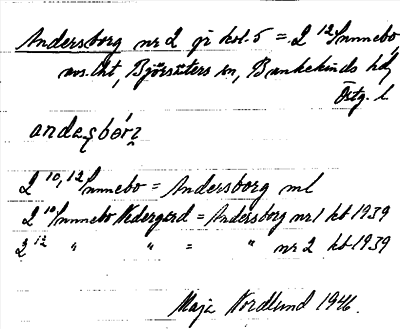 Andersborg nr 2 gr kol. 5 = 2 12 Sunnebo
ans. Cht, Björsäters sn, Bankekinds hd,
Östg. l.
andaʂbórʐ
2 10, 12 Sunnebo = Andersborg ml
2 10 Sunnebo Nedergård = Andersborg nr 1 kb 1939
2 12 " " = " nr 2 kb 1939
Maja Nordlund 1946.